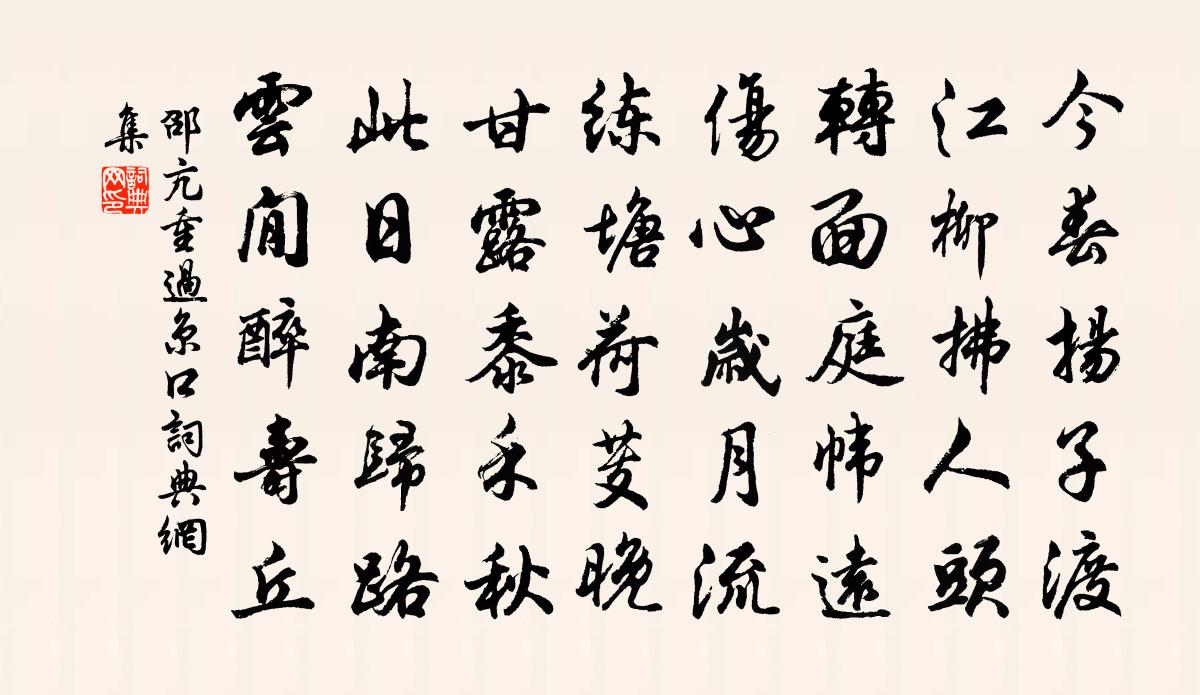 今春揚子渡
江柳拂人頭
轉面庭帏遠
傷心歲月流
练塘荷芰晚
甘露黍禾秋
此日南歸路
雲閒醉壽丘
邵亢重過京口詞典網
集
詞典網印